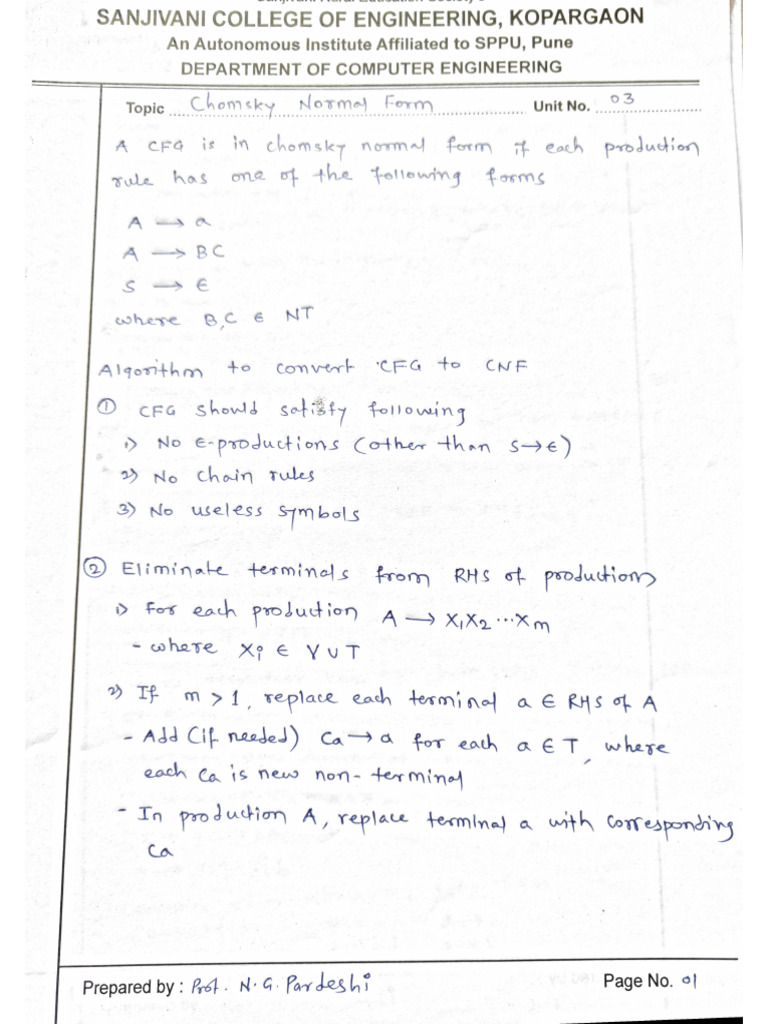 SANJIVANI COLLEGE OF ENGINEERING, KOPARGAON
An Autonomous Institute Affiliated to SPPU, Pune
DEPARTMENT OF COMPUTER ENGINEERING
Topic Chomsky Normal Form Unit No. 03
A CFG is in chomsky normal form if each production
rule has one of the following forms
A → a
A → BC
S → ϵ
where B,C ∈ NT
Algorithm to convert CFG to CNF
① CFG should satisfy following
1) No ϵ-productions (other than S→ϵ)
2) No chain rules
3) No useless symbols
② Eliminate terminals from RHS of productions
1) For each production A → X₁X₂...Xm
- where Xi ∈ V ∪ T
2) If m > 1, replace each terminal a ∈ RHS of A
- Add (if needed) Ca → a for each a ∈ T, where
each Ca is new non-terminal
- In production A, replace terminal a with corresponding
Ca
Prepared by : Prof. N. G. Pardeshi Page No. 01